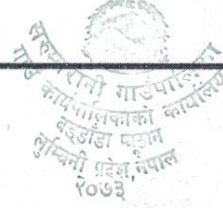 सरुमारानी गाउँपालिका
गाउँ कार्यपालिकाको कार्यालय
वडडाँडा प्यूठान
लुम्बिनी प्रदेश, नेपाल
२०७३